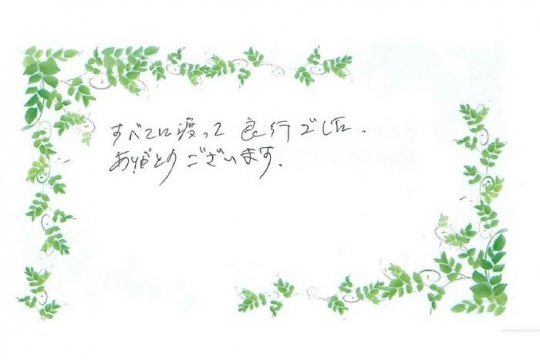 すべてに渡って良行でした.
ありがとうございます.